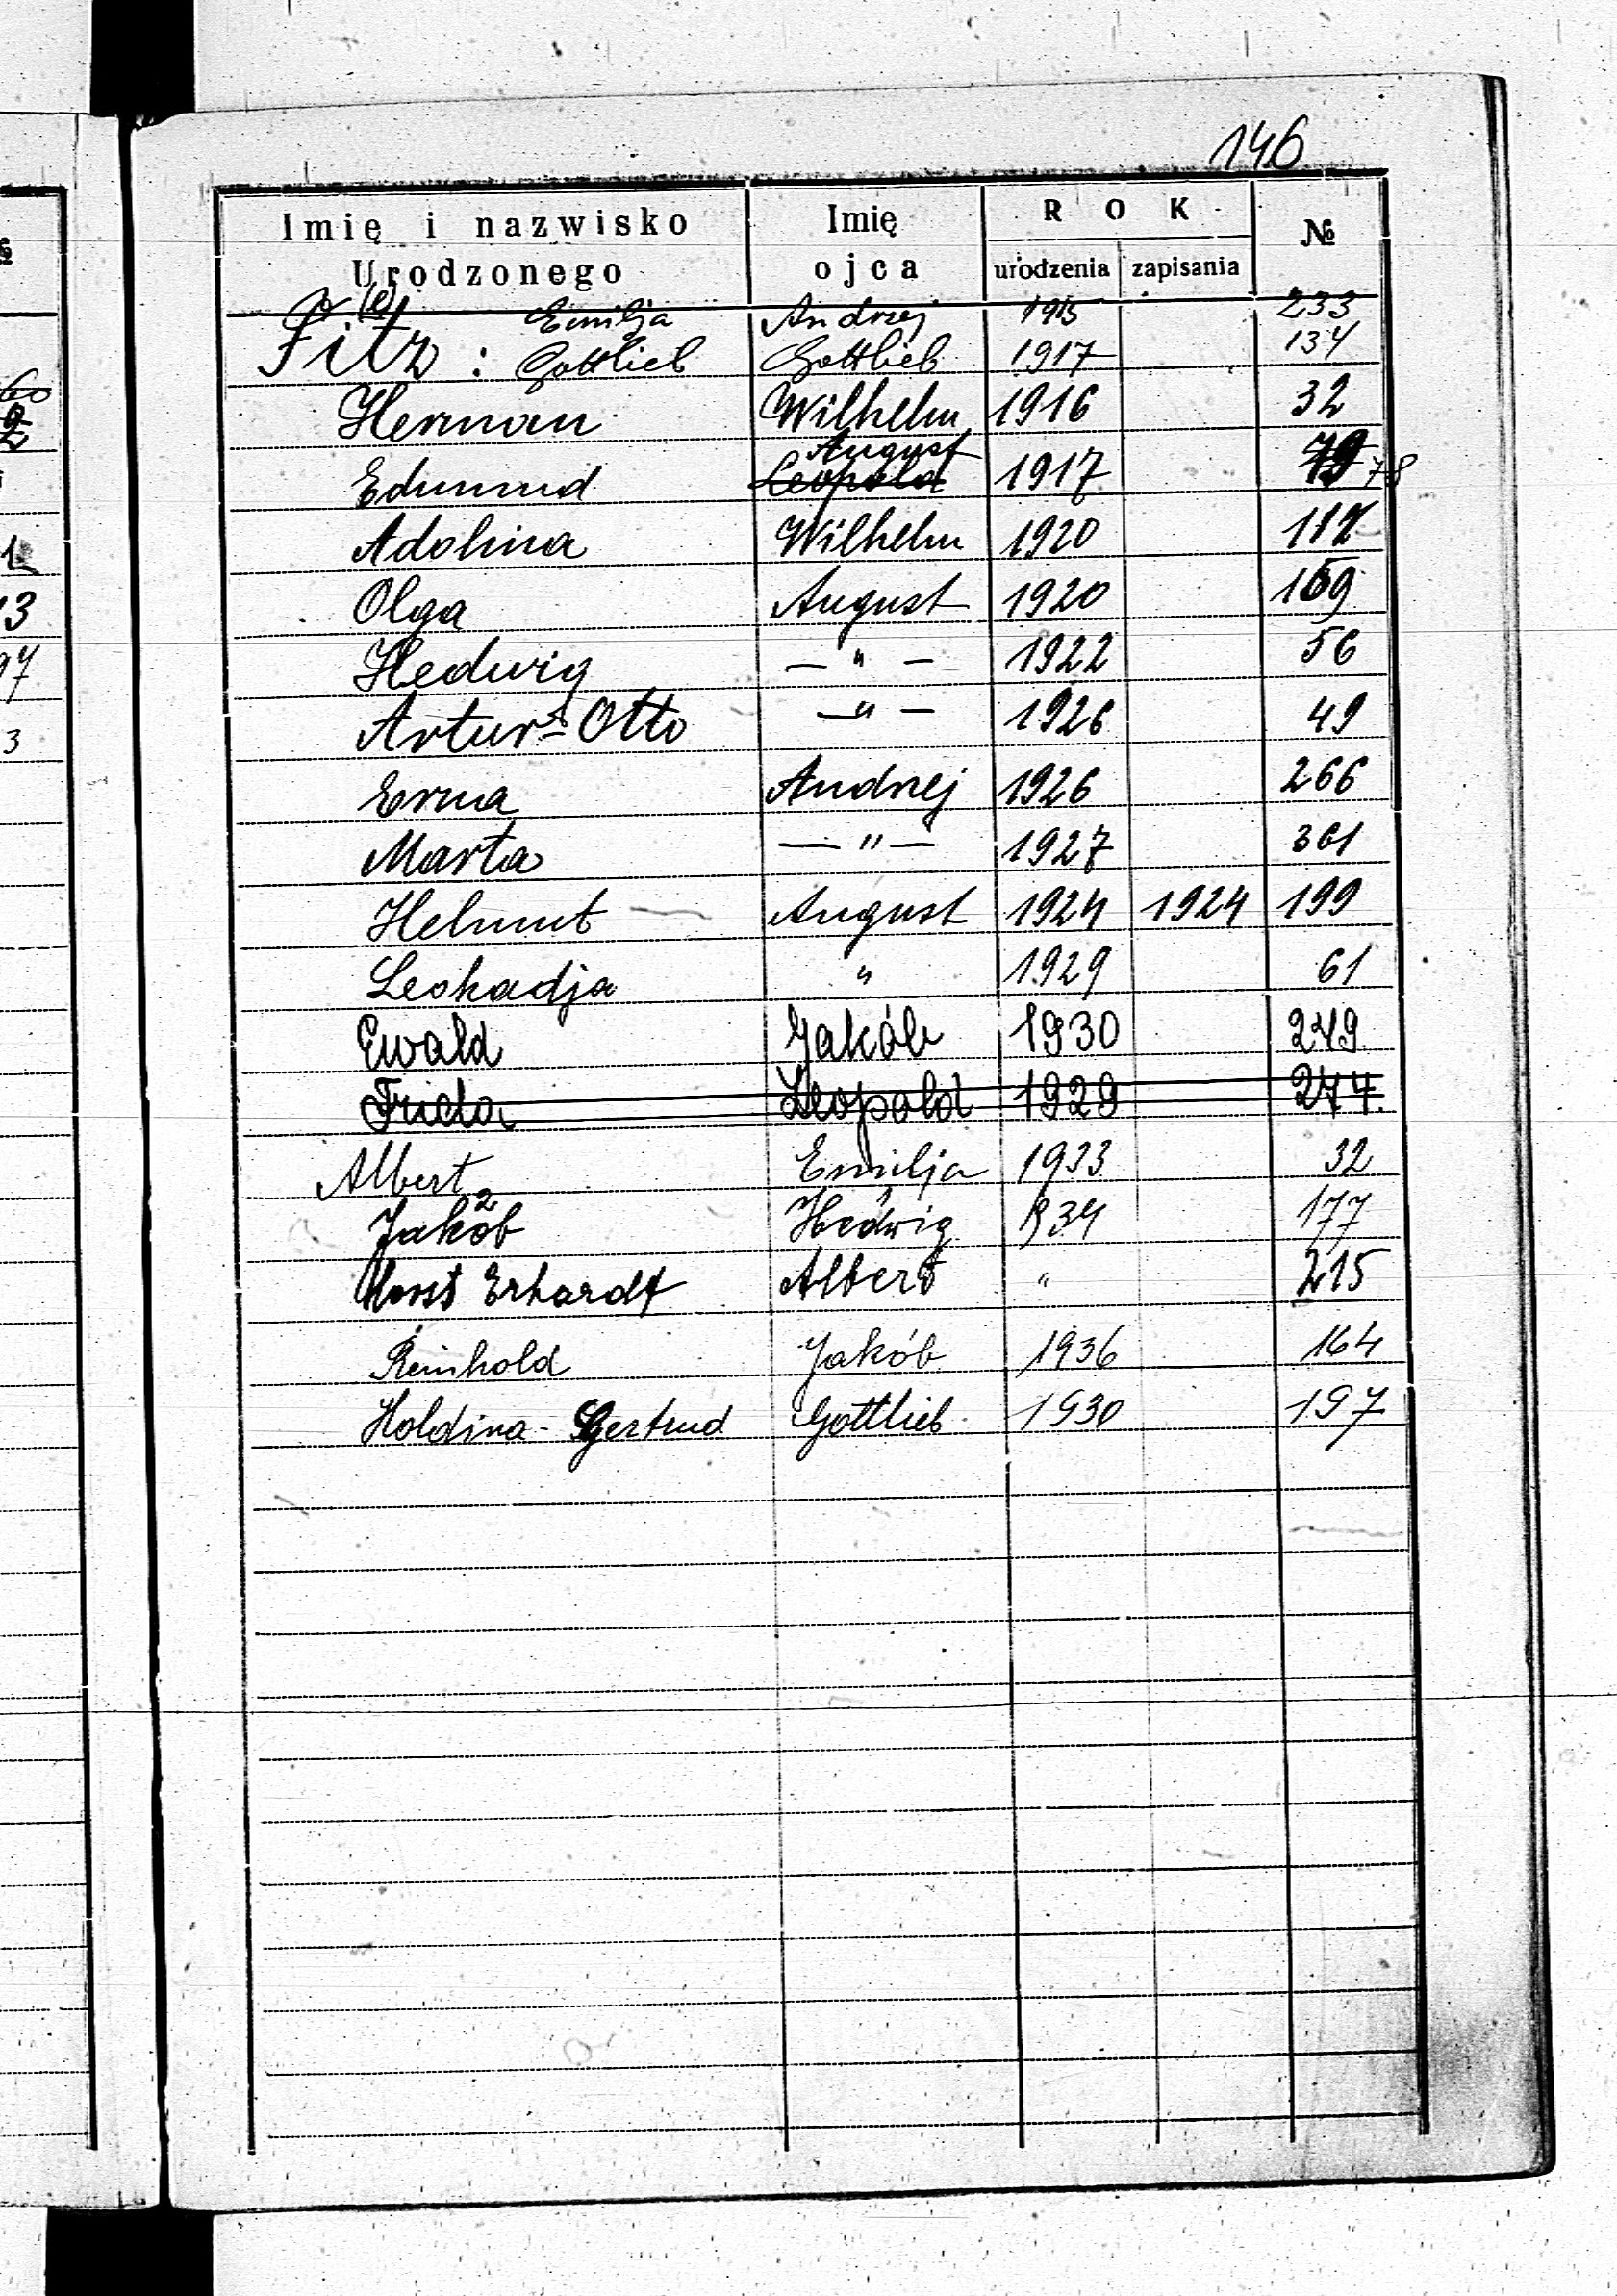 146
Imię i nazwisko Urodzonego Imię ojca ROK urodzenia zapisania №
Emilja Andrzej 1915 233
Fitz : Gottlieb Gottlieb 1917 134
Herman Wilhelm 1916 32
August
Edmund Leopold 1917 79 78
Adolina Wilhelm 1920 112
Olga August 1920 169
Hedwig — " — 1922 56
Artur - Otto — " — 1926 49
Erna Andrzej 1926 266
Marta — " — 1927 361
Helmut August 1924 1924 199
Leokadja " 1929 61
Ewald Jakób 1930 249
Frieda Leopold 1929 274.
Albert Emilja 1933 32
Jakób Hedwig 1934 177
Horst Erhardt Albert " 215
Reinhold Jakób 1936 164
Holdina - Gertrud Gottlieb 1930 197
№
60
2
1
13
97
3